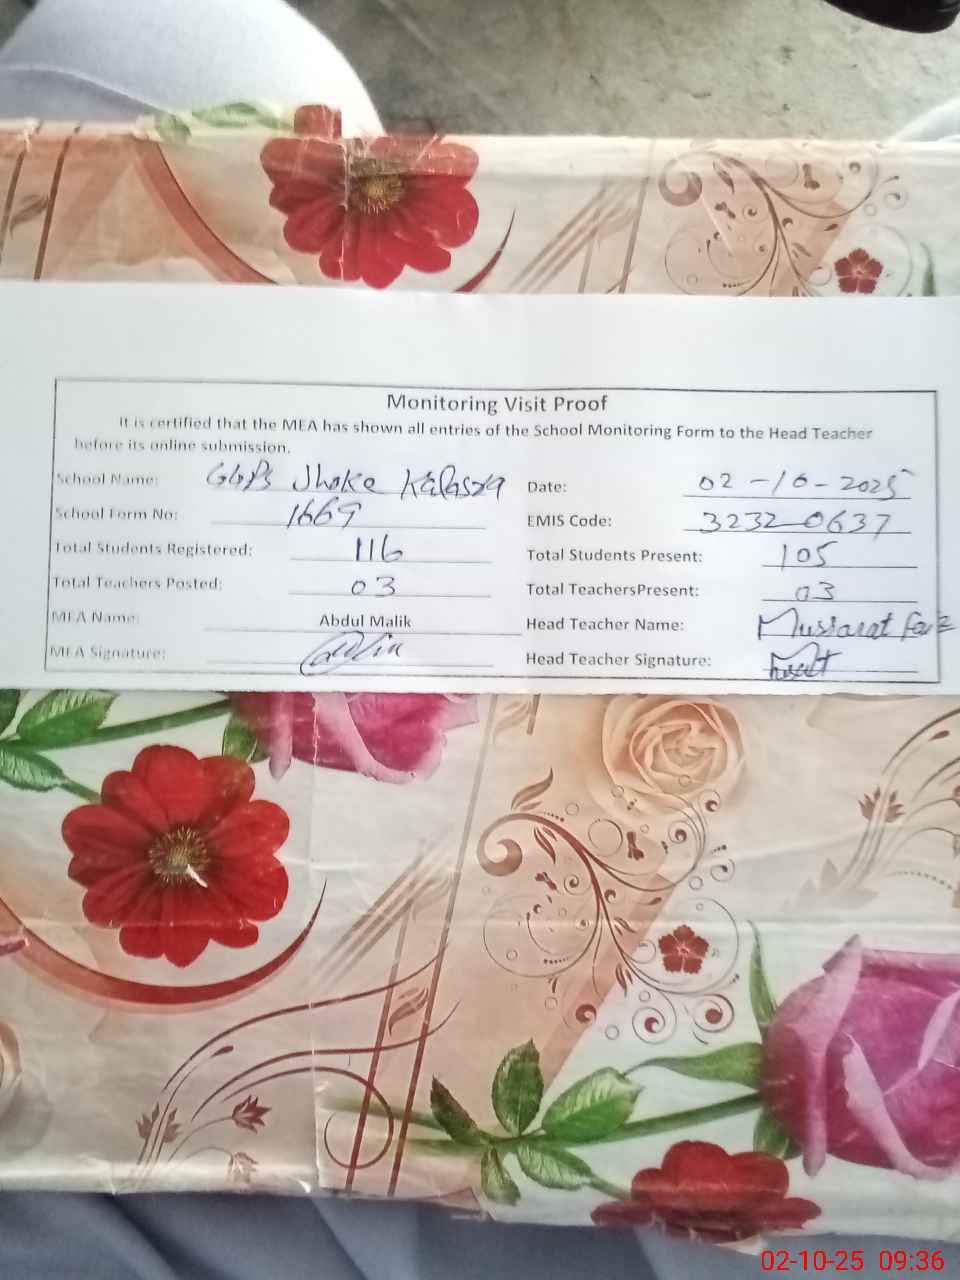 Monitoring Visit Proof
It is certified that the MEA has shown all entries of the School Monitoring Form to the Head Teacher
before its online submission.
School Name: GGPS Jhoke Date: 02-10-2025
School Form No: 1669 EMIS Code: 32320637
Total Students Registered: 116 Total Students Present: 105
Total Teachers Posted: 03 Total TeachersPresent: 03
MEA Name: Abdul Malik Head Teacher Name: Mussarat
MEA Signature: Head Teacher Signature:
02-10-25 09:36